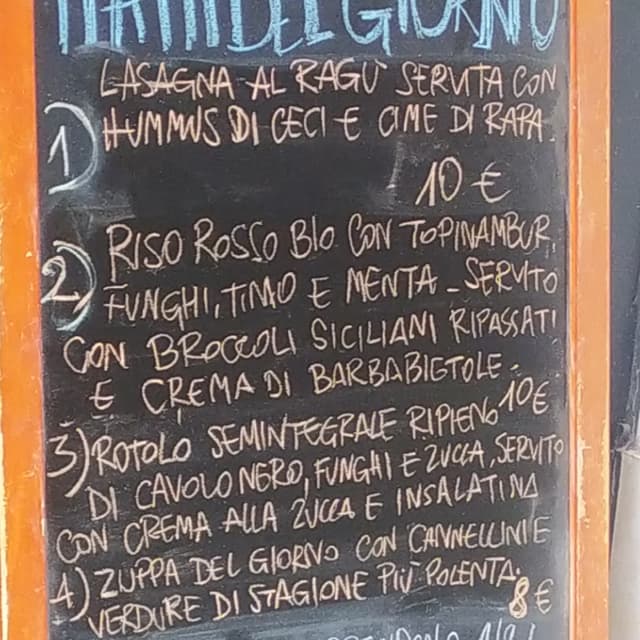 PIATTI DEL GIORNO
LASAGNA AL RAGÙ SERVITA CON
1) HUMMUS DI CECI E CIME DI RAPA.
10 €
RISO ROSSO BIO CON TOPINAMBUR,
2) FUNGHI, TIMO E MENTA - SERVITO
CON BROCCOLI SICILIANI RIPASSATI
E CREMA DI BARBABIETOLE.
10€
3) ROTOLO SEMINTEGRALE RIPIENO
DI CAVOLO NERO, FUNGHI E ZUCCA, SERVITO
CON CREMA ALLA ZUCCA E INSALATINA
4) ZUPPA DEL GIORNO CON CANNELLINI E
VERDURE DI STAGIONE PIÙ POLENTA.
8 €